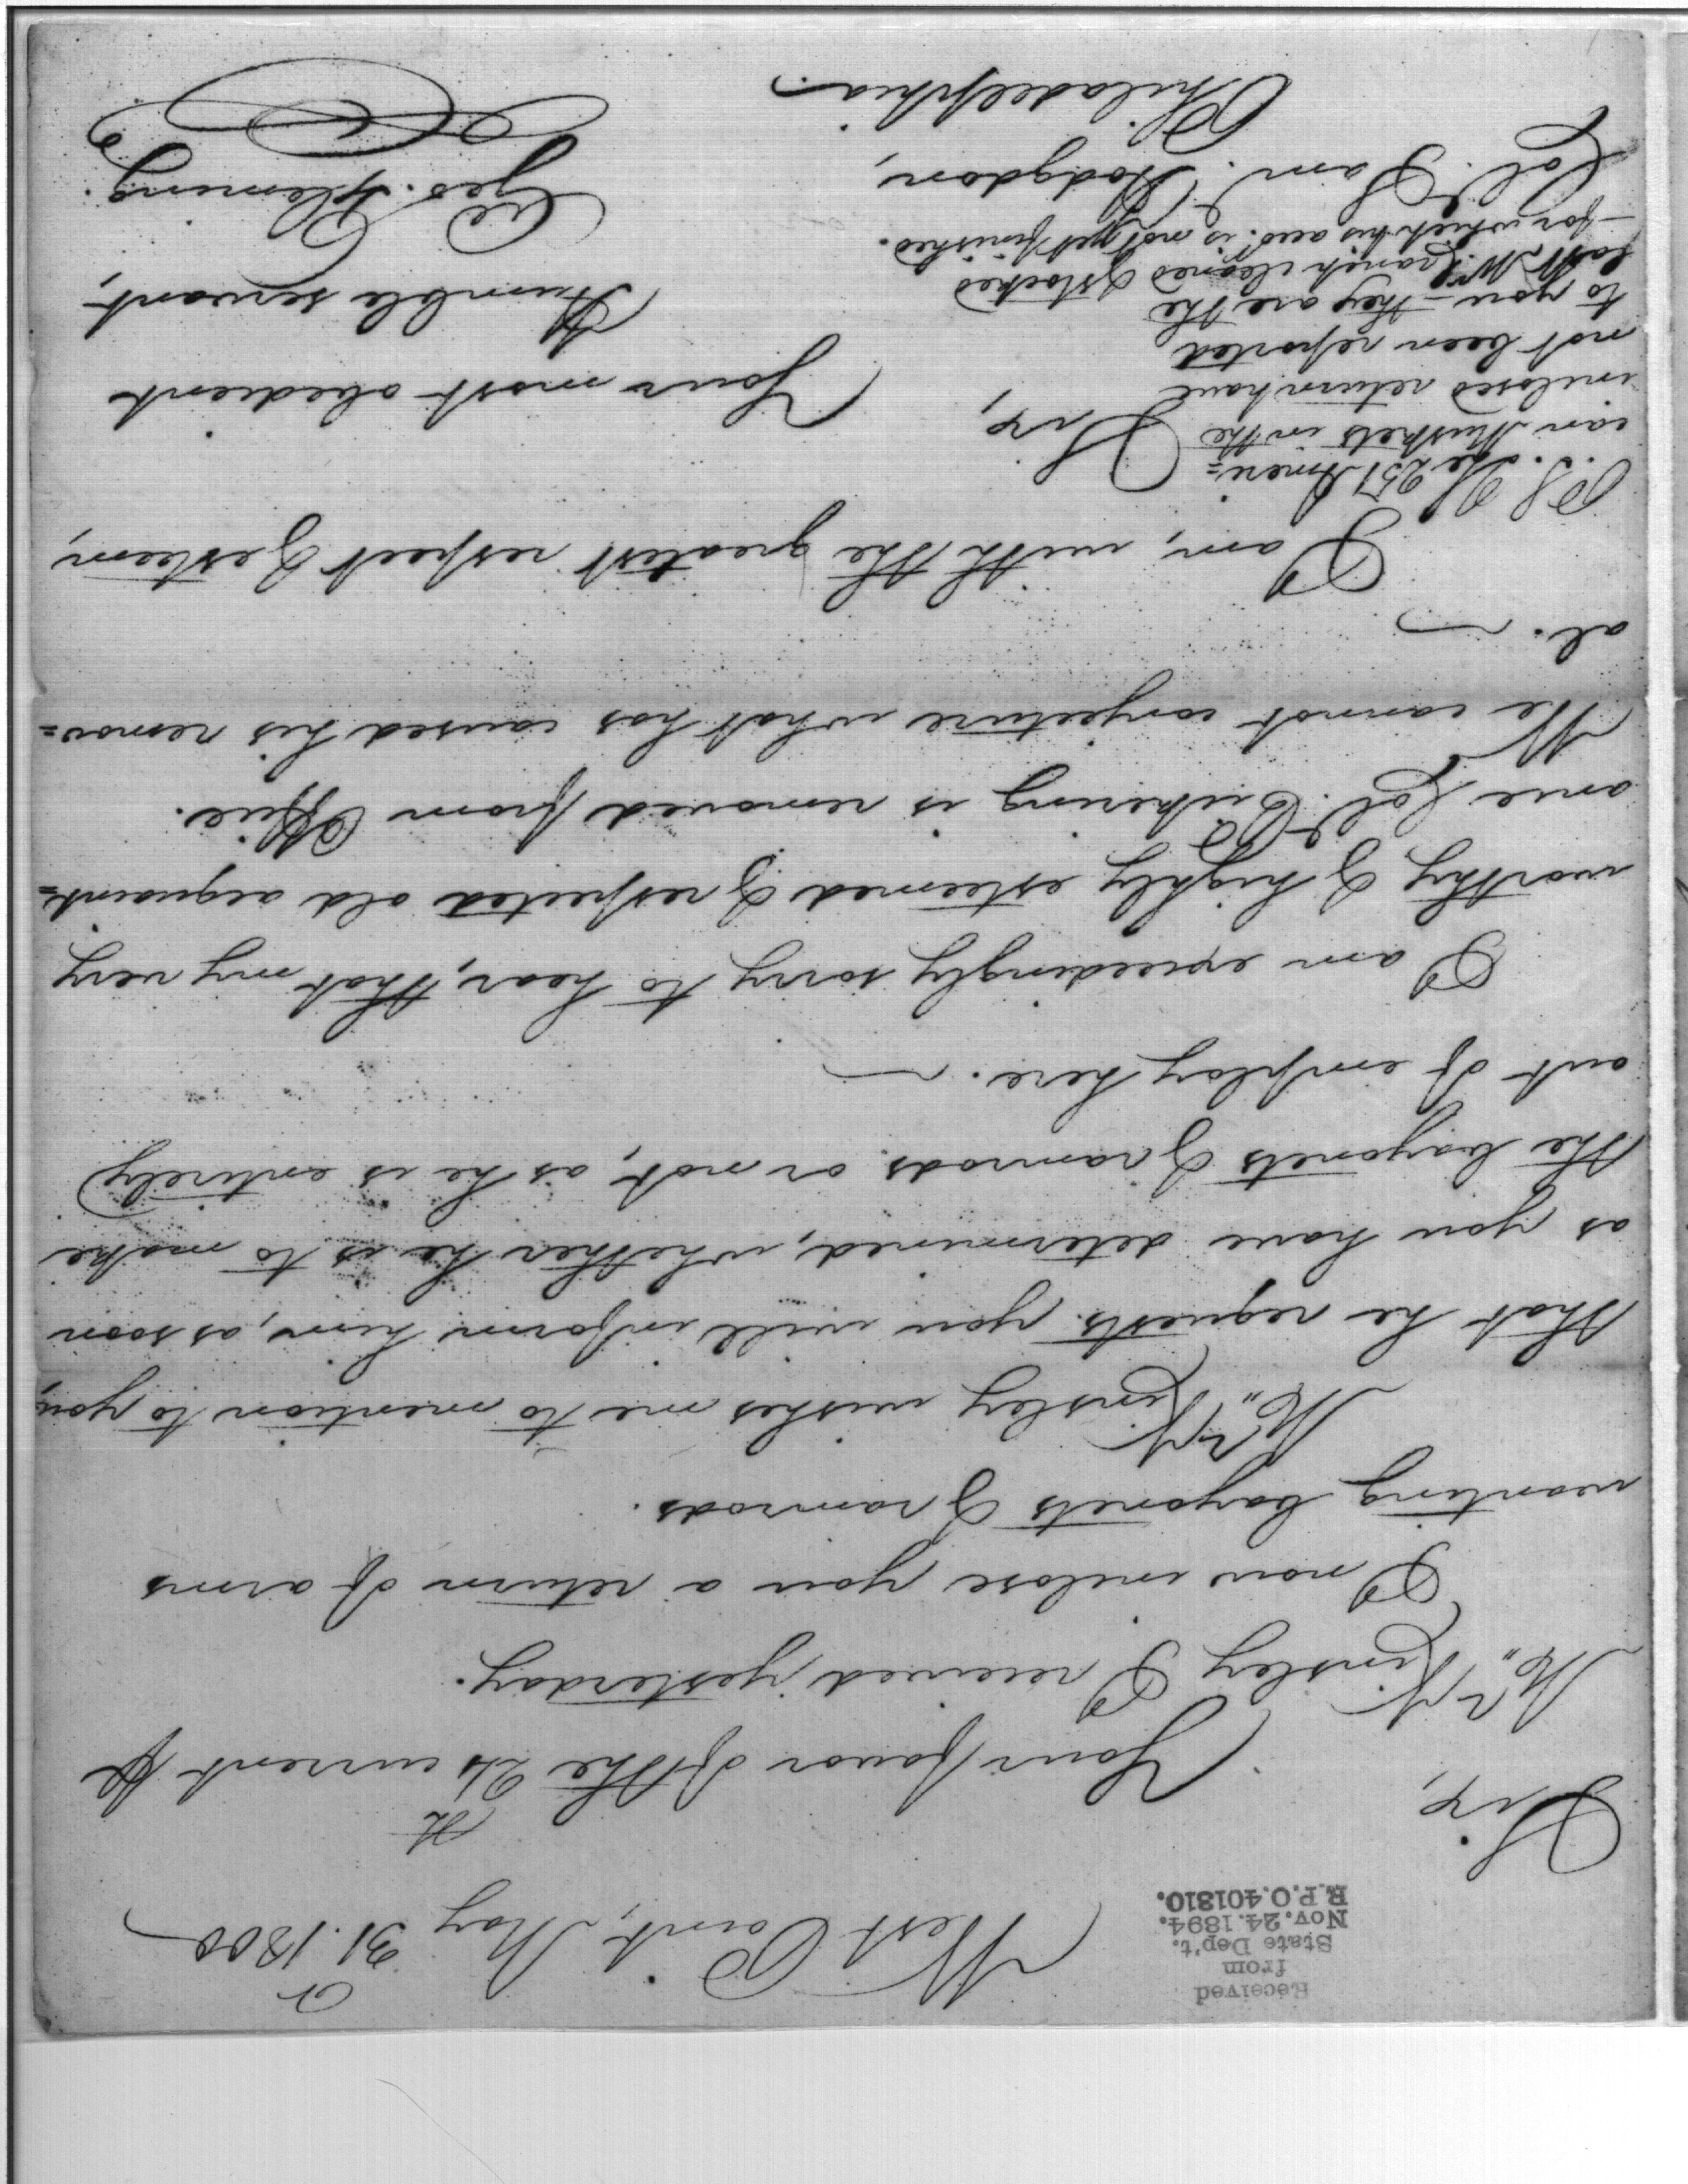 Received
from
State Dep't.
Nov. 24. 1894.
R.P.O. 401810.
West Point, May 31. 1800
Sir,
Your favor of the 24th current
Mr. Kinsley I received yesterday.
I now inclose you a return of arms
wanting bayonets & ramrods.
Mr. Kinsley wishes me to mention to you,
that he requests you will inform him, as soon
as you have determined, whether he is to make
the bayonets & ramrods or not, as he is entirely
out of employ here.
I am exceedingly sorry to hear, that my very
worthy & highly esteemed & respected old acquaint=
ance Col. Pickering is removed from Office.
We cannot conjecture what has caused his remov=
al.
I am, with the greatest respect & esteem,
Sir,
Your most obedient
Humble servant,
Geo. Fleming.
P.S. The 257 Ameri=
can Muskets in the
inclosed return have
not been reported
to you — they are the
last Mr. Cranch cleaned & stocked
for which his acct. is not yet finished.
Col. Sam. Hodgdon,
Philadelphia.